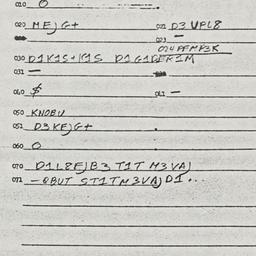 010 0
020 MEJG+ 021 D3 VPL8
023 —
024 PFMP3R
030 D1K1S+K1S D1G1DEK1M
031 —
040 $ 041 —
050 KNOBU
051 D3KFJG+
060 0
070 D1L8FJB3 T1T M3VAJ
071 -@BUT ST1TM3VAJD1...